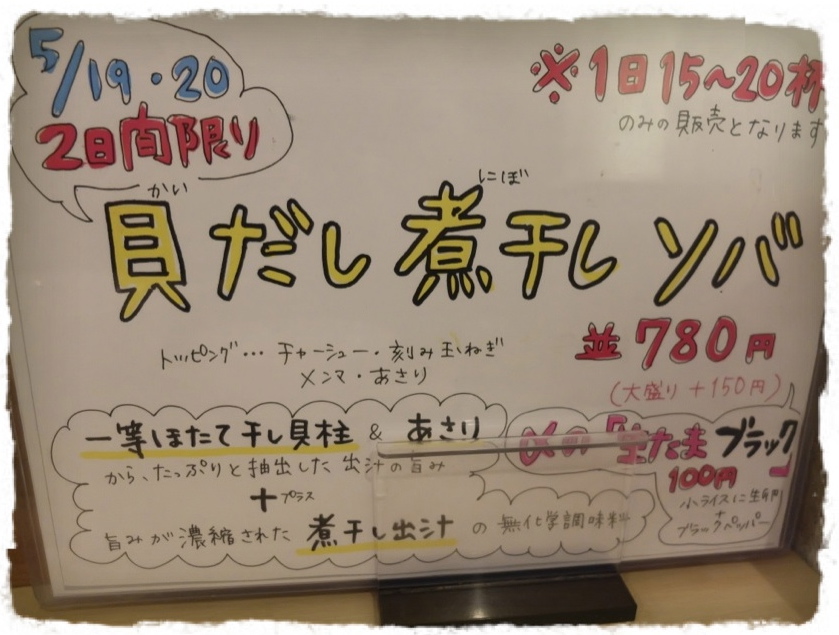 5/19・20
2日間限り
※1日15〜20杯
のみの販売となります
かい にぼ
貝だし煮干しソバ
トッピング… チャーシュー・刻み玉ねぎ
メンマ・あさり
並780円
(大盛り+150円)
一等ほたて干し貝柱 & あさり
から、たっぷりと抽出した出汁の旨み
+プラス
旨みが濃縮された 煮干し出汁 の 無化学調味料
たまブラック
100円
小ライスに生卵
+
ブラックペッパー